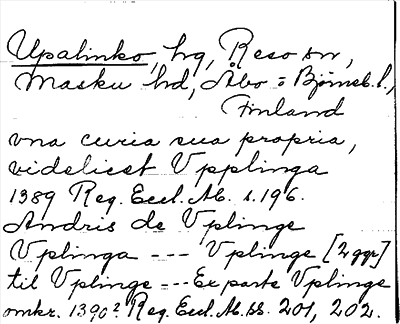 Upalinko, hg, Reso sn,
Masku hd, Åbo o Björneb. l.,
Finland
vna curia sua propria,
videlicet Vpplinga
1389 Reg. Eccl. Ab. s. 196.
Andris de Vplinge
Vplinga --- Vplinge [2 ggr]
til Vplinge --- Ex parte Vplinge
omkr. 1390? Reg. Eccl. Ab. ss. 201, 202.